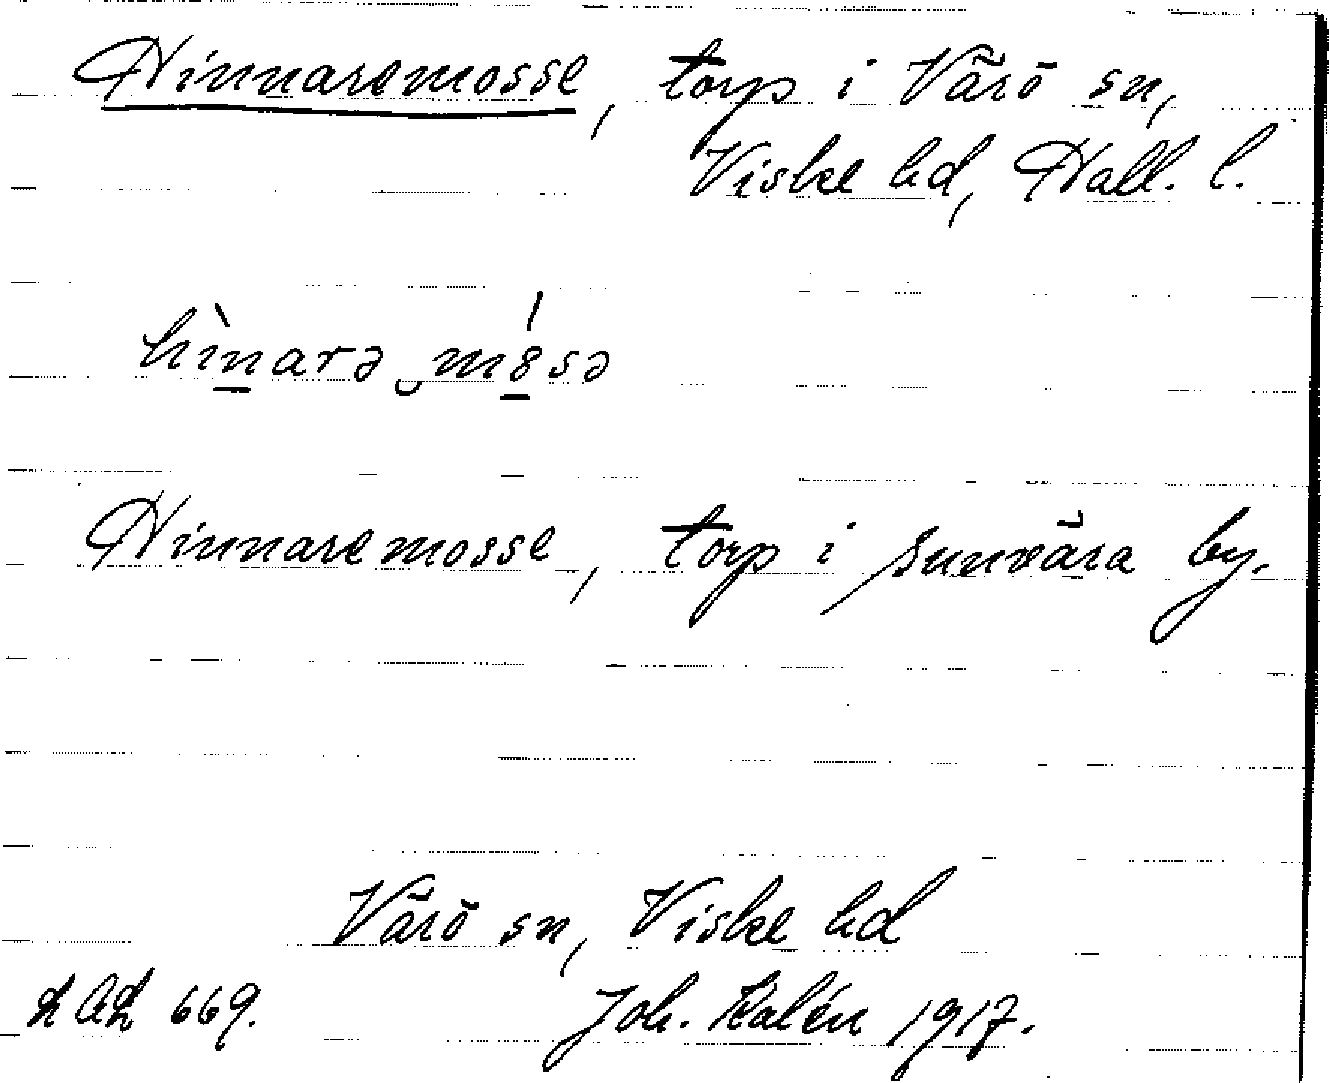 Hinnaremosse, torp i Värö sn,
Viske hd, Hall. l.
hìnarə mósə
Hinnaremosse, torp i Sunvära by.
Värö sn, Viske hd
LAL 669. Joh. Kalén 1917.